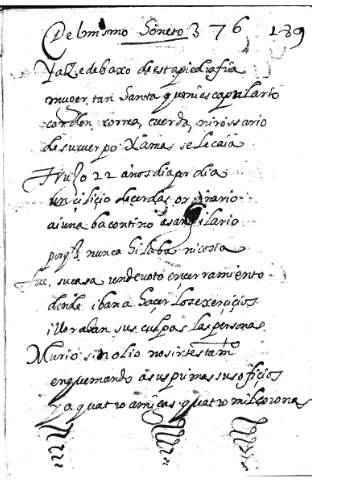 Del mismo Soneto 376 189
Yaze debaxo de esta piedra fria
muger tan santa que ni escapulario
cordon, correa, cuerda, ni rossario
de su cuerpo Xamas se le caia
Truxo 22 años dia por dia
un cilicio de cerdas ordinario
aiunaba contino a
porq nunca hilaba ni cosia
Fue su casa un devoto encerramiento
donde iban a haçer los exerçiçios
i lloraban sus culpas las personas
Murio sin olio no sin testamto
en que mando a sus primas sus ofiçios
y a quatro amigas quatro mil coronas